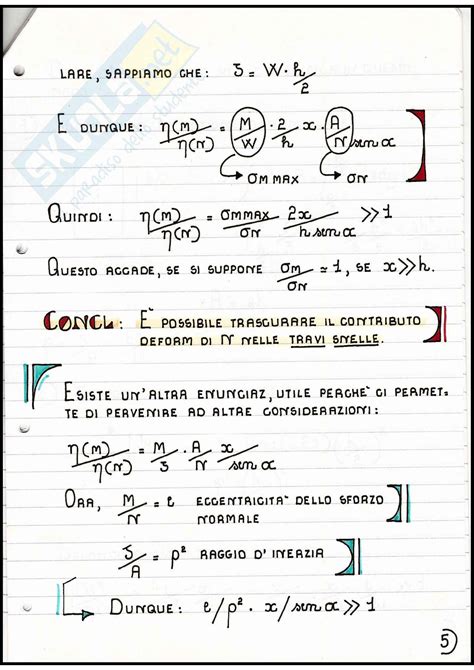 LARE, SAPPIAMO CHE: J = W · h/2
SKUOLA.net
paradiso dello studente
E DUNQUE: η(M)/η(N) = M/W · 2/h x · A/N senα
σM MAX σN
QUINDI: η(M)/η(N) = σM MAX/σN 2x/h senα >> 1
QUESTO ACCADE, SE SI SUPPONE σM/σN ≃ 1, SE x >> h.
CONCL: E' POSSIBILE TRASCURARE IL CONTRIBUTO
DEFORM DI N NELLE TRAVI SNELLE.
ESISTE UN'ALTRA ENUNCIAZ, UTILE PERCHE' CI PERMET-
TE DI PERVENIRE AD ALTRE CONSIDERAZIONI:
η(M)/η(N) = M/J · A/N · x/senα
ORA, M/N = e ECCENTRICITA' DELLO SFORZO
NORMALE
J/A = ρ² RAGGIO D'INERZIA
DUNQUE: e/ρ² · x/senα >> 1
5